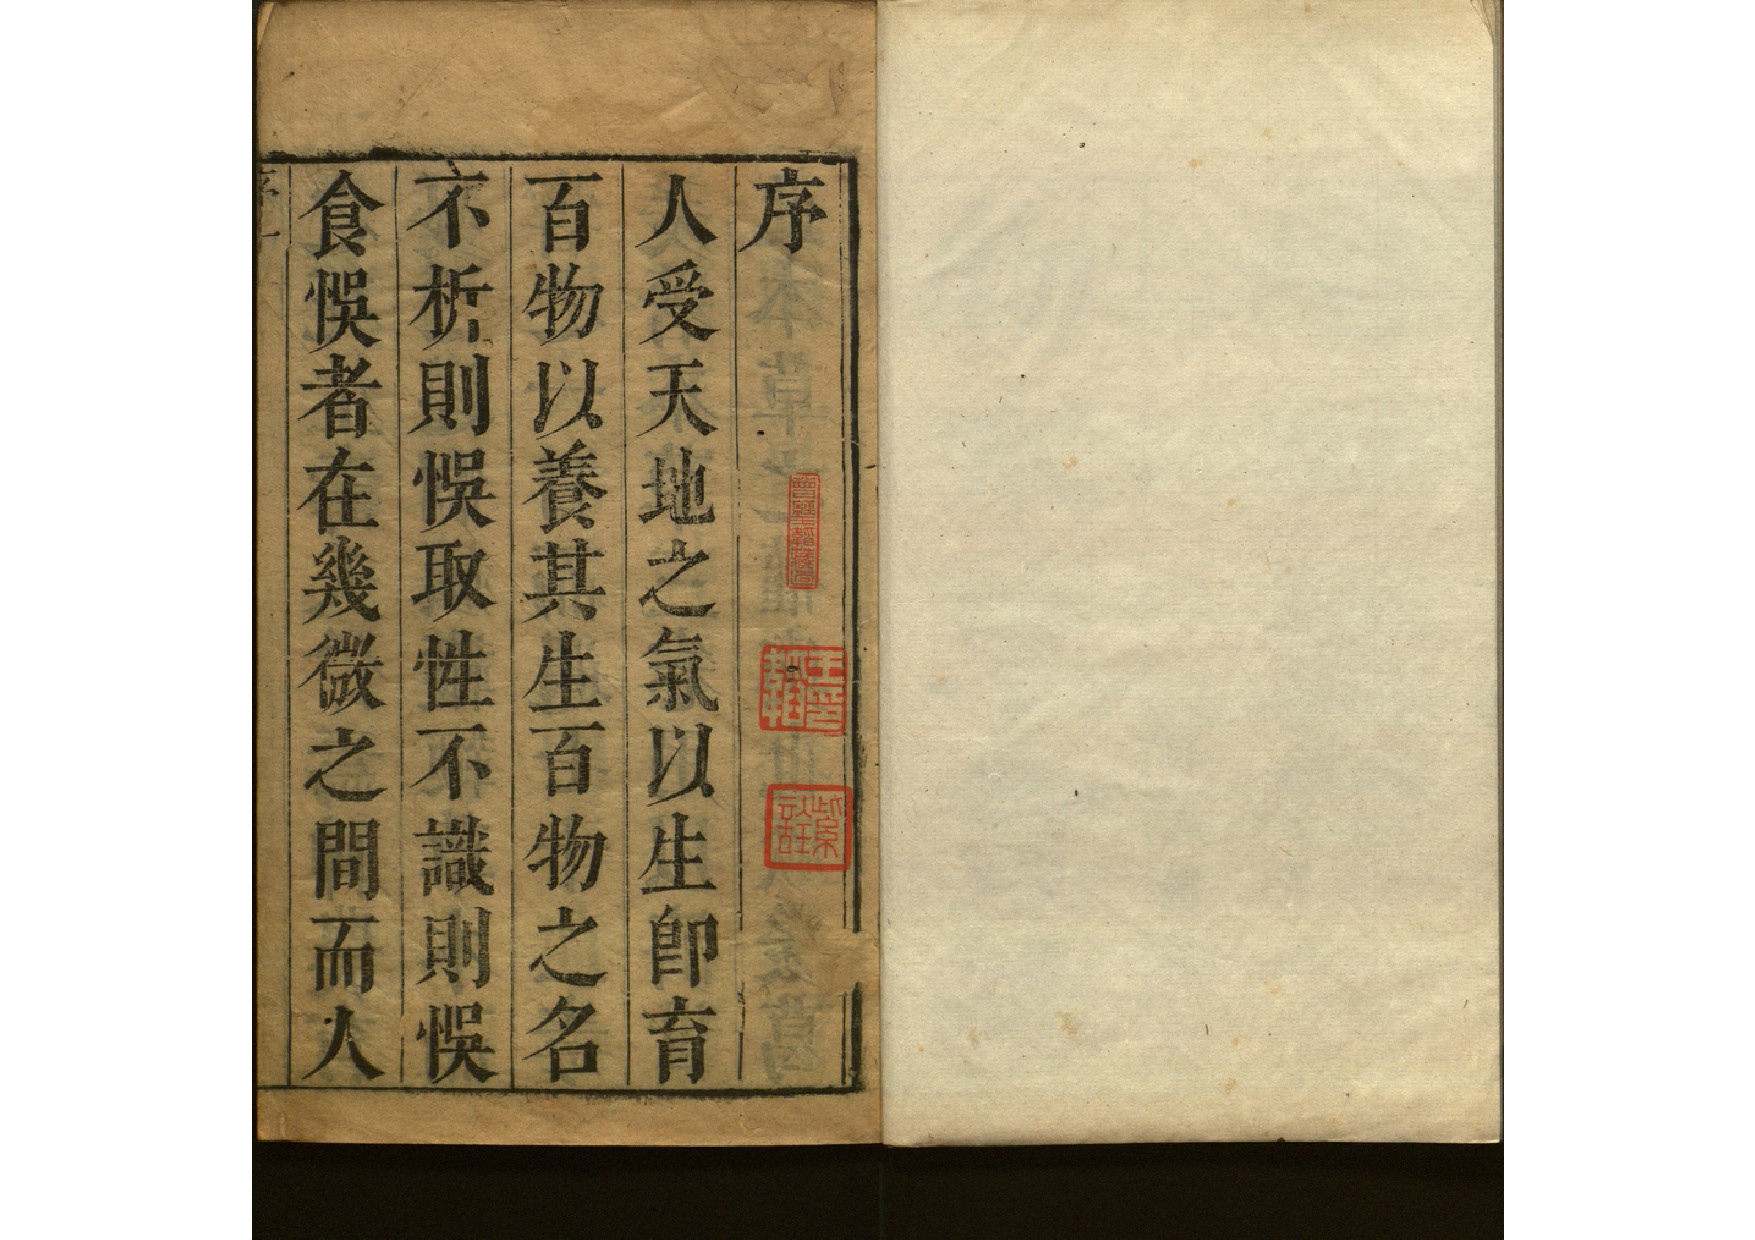 序
人受天地之氣以生卽育
百物以養其生百物之名
不析則悞取性不識則悞
食悞者在幾微之間而人
序